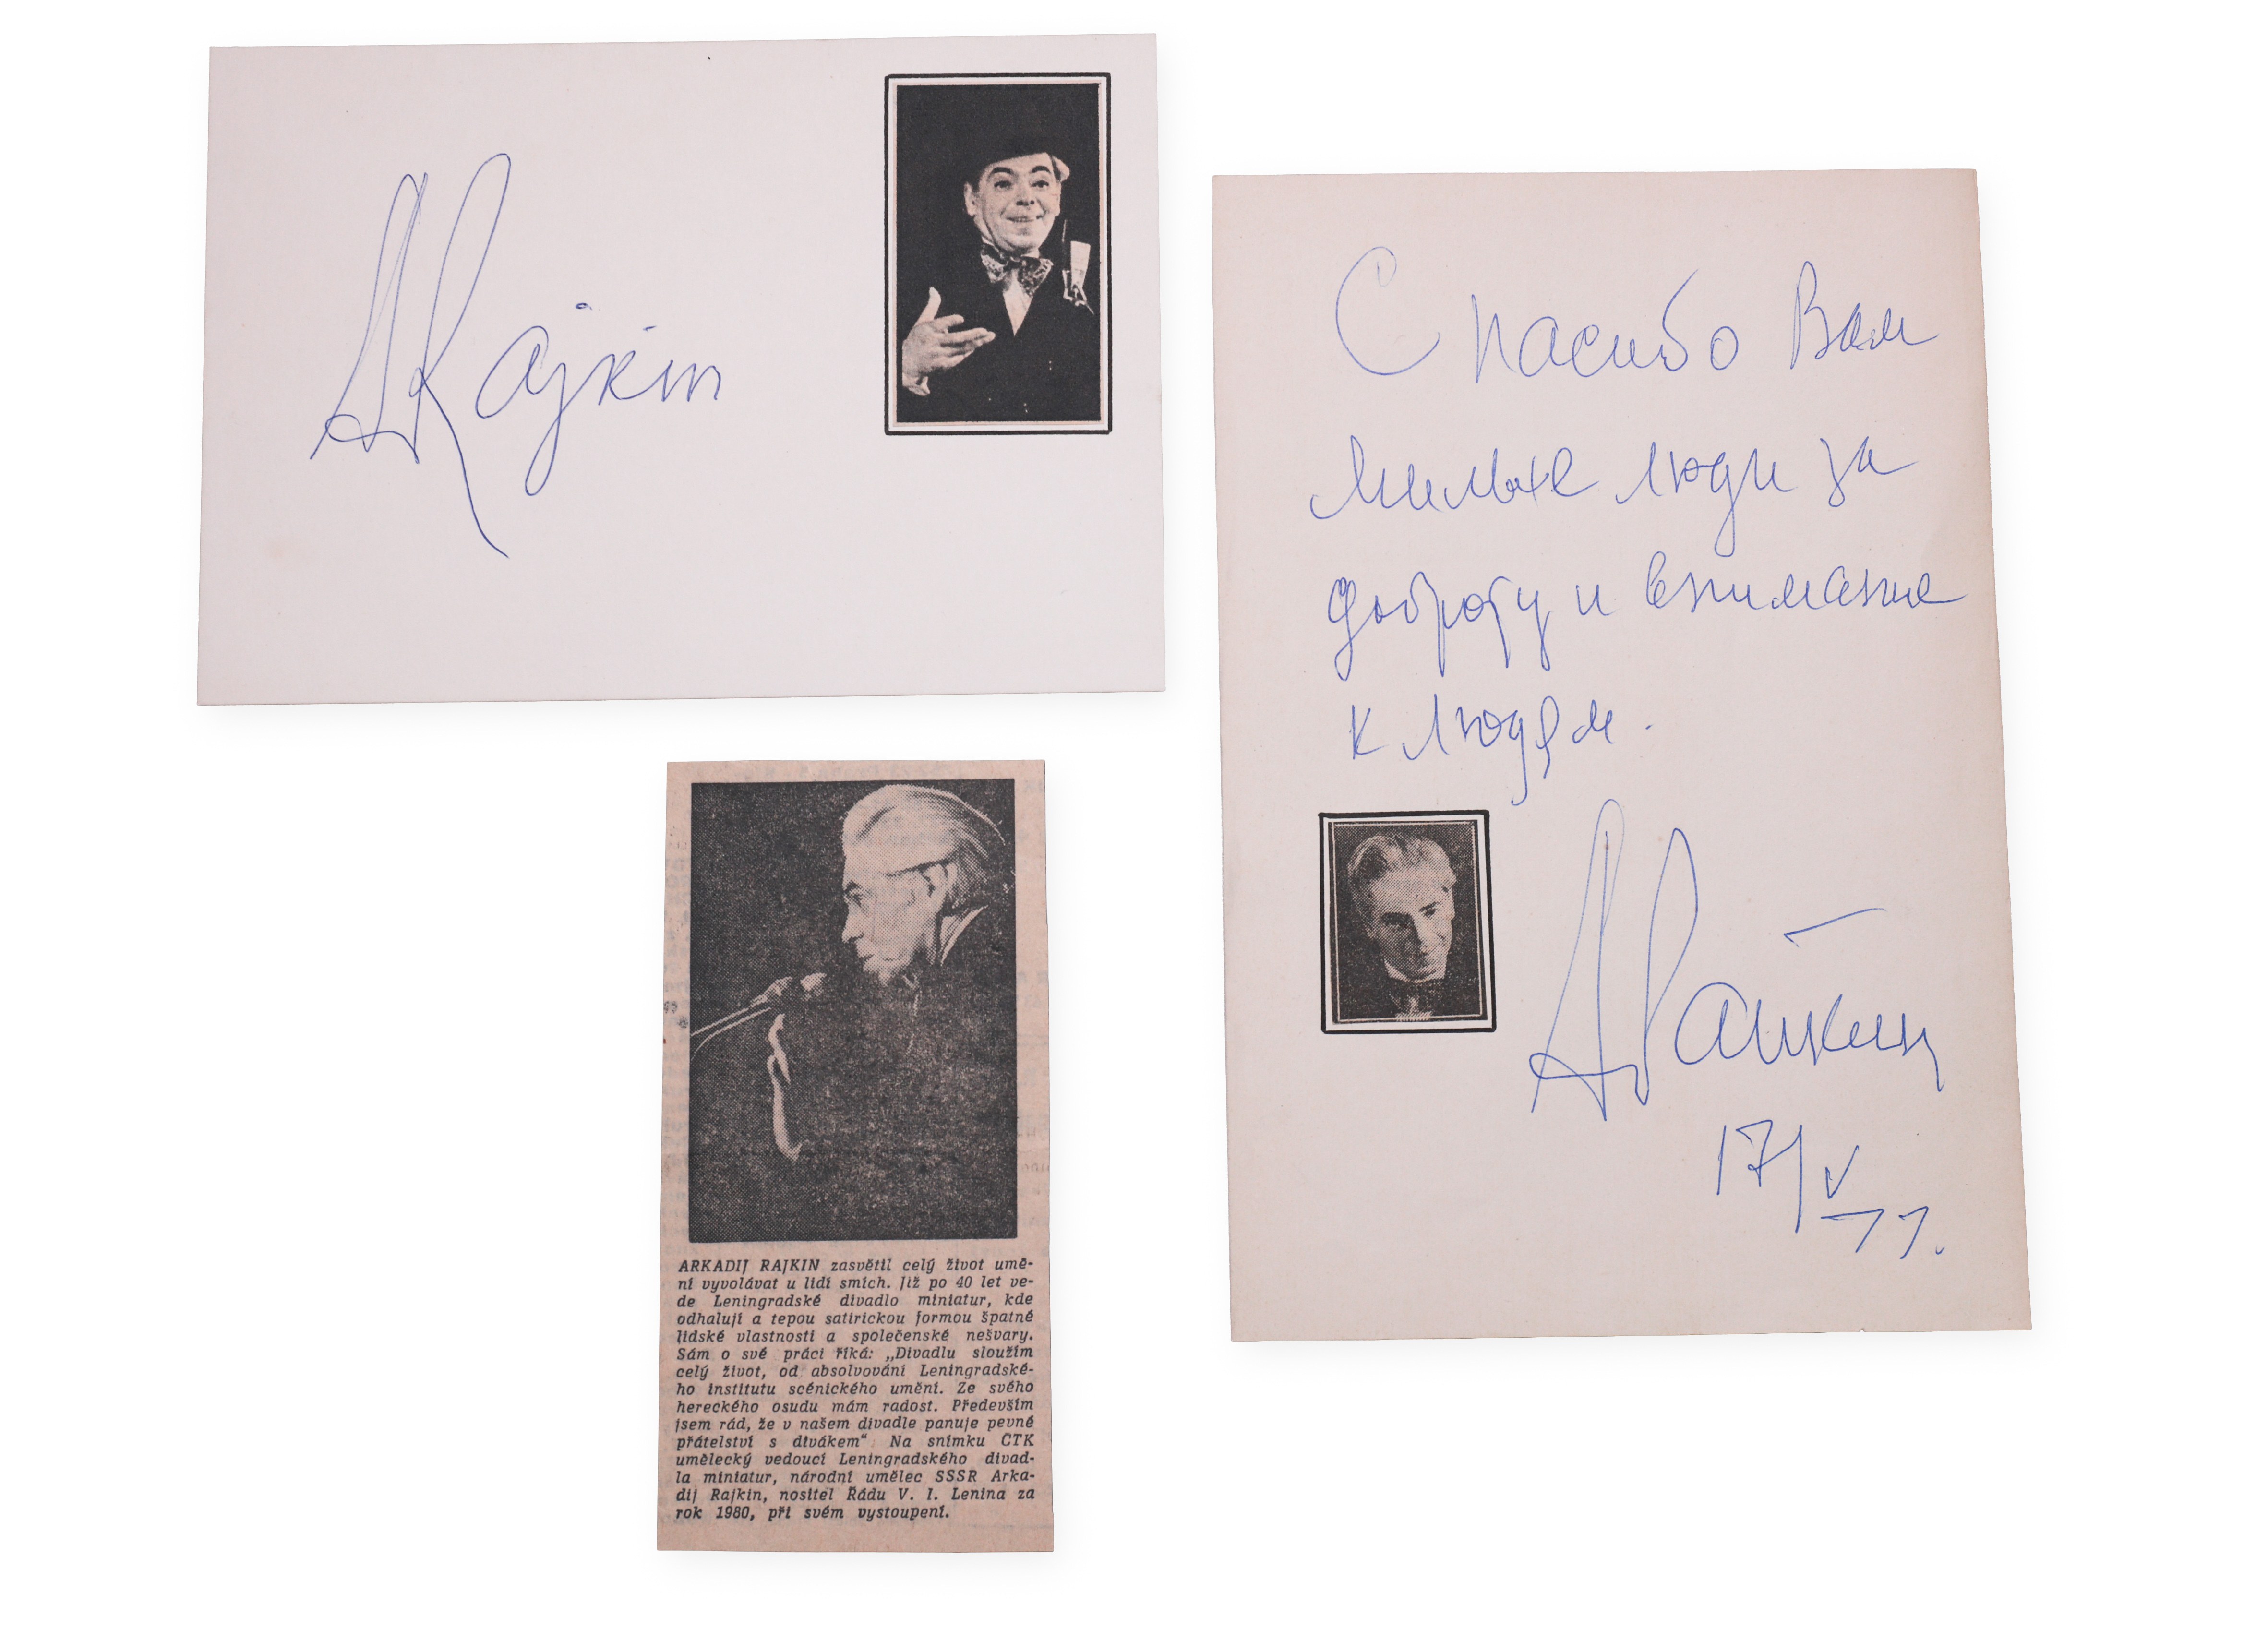 ARajkin
Спасибо Вам
милые люди за
доброту и внимание
к людям.
АРайкин
17/V
77.
ARKADIJ RAJKIN zasvětil celý život umě-
ní vyvolávat u lidí smích. Již po 40 let ve-
de Leningradské divadlo miniatur, kde
odhalují a tepou satirickou formou špatné
lidské vlastnosti a společenské nešvary.
Sám o své práci říká: „Divadlu sloužím
celý život, od absolvování Leningradské-
ho institutu scénického umění. Ze svého
hereckého osudu mám radost. Především
jsem rád, že v našem divadle panuje pevné
přátelství s divákem“ Na snímku ČTK
umělecký vedoucí Leningradského divad-
la miniatur, národní umělec SSSR Arka-
dij Rajkin, nositel Řádu V. I. Lenina za
rok 1980, při svém vystoupení.